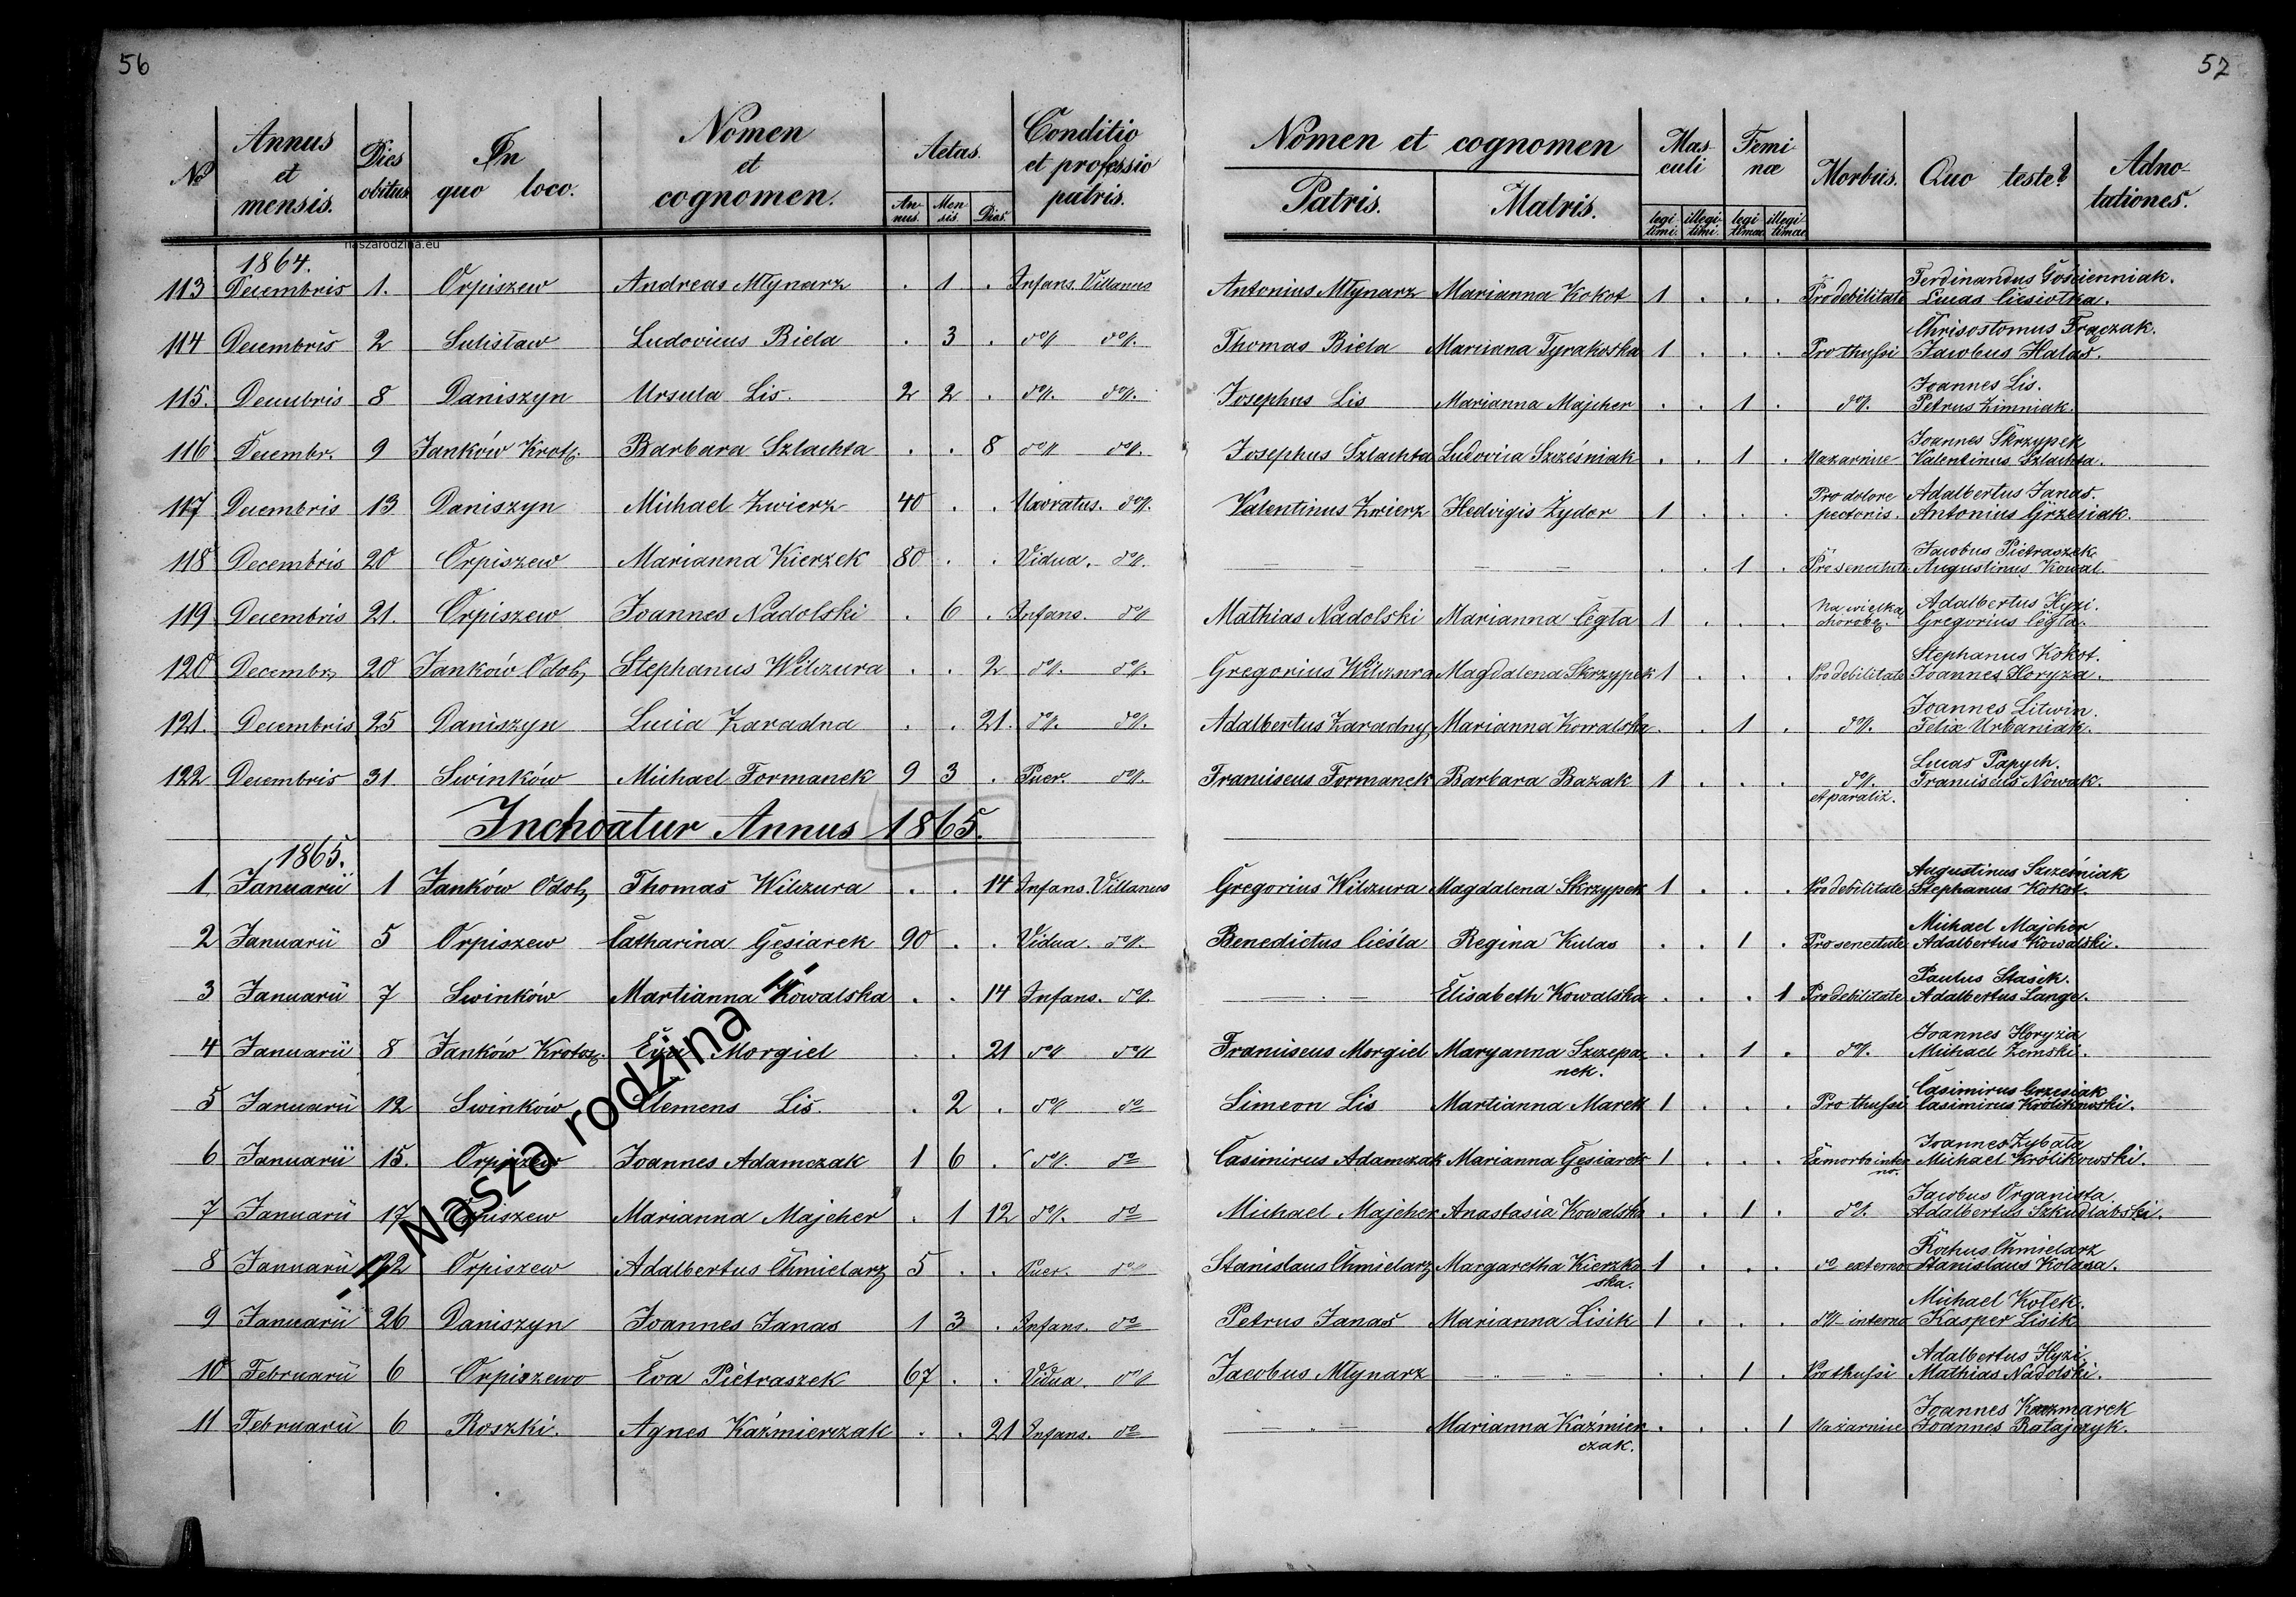 56
57
No Annus et mensis. Dies obitus In quo loco. Nomen et cognomen. Aetas. Annus. Mensis Dies. Conditio et professio patris. Nomen et cognomen Patris. Matris. Masculi legitimi. illegitimi. Feminæ legitimæ illegitimæ Morbus. Quo teste? Adnotationes.
naszarodzina.eu
1864.
113 Decembris 1. Orpiszew Andreas Młynarz . 1 . Infans. Villanus Antonius Młynarz Marianna Kokot 1 . . . Pro debilitate Ferdinandus Gościenniak. Lucas Ciesiołka.
114 Decembris 2 Sulisław Ludovicus Biela . 3 . do. do. Thomas Biela Marianna Tyrakoska 1 . . . Pro thussi Chrisostomus Frączak. Jacobus Halas.
115. Decembris 8 Daniszyn Ursula Lis. 2 2 . do. do. Josephus Lis Marianna Majcher . . 1 . do. Joannes Lis. Petrus Zimniak.
116 Decembr. 9 Janków Krot. Barbara Szlachta . . 8 do. do. Josephus Szlachta Ludovica Szcześniak . . 1 . Nażarnice Joannes Skrzypek Valentinus Szlachta.
117 Decembris 13 Daniszyn Michael Zwierz 40 . . Uxoratus. do. Valentinus Zwierz Hedvigis Żydor 1 . . . Pro dolore pectoris. Adalbertus Janas. Antonius Grzesiak.
118 Decembris 20 Orpiszew Marianna Kierzek 80 . . Vidua. do. — — — — . . 1 . Pro senectute Jacobus Pietraszek. Augustinus Kowal.
119 Decembris 21. Orpiszew Joannes Nadolski . 6 . Infans. do Mathias Nadolski Marianna Cegta 1 . . . Na wielką chorobę. Adalbertus Hyzi. Gregorius Cegta.
120 Decembr. 20 Janków Odol. Stephanus Wilczura . . 2 do. do. Gregorius Wilczura Magdalena Skrzypek 1 . . . Pro debilitate Stephanus Kokot. Joannes Horyza.
121. Decembris 25 Daniszyn Lucia Zaradna . . 21. do. do. Adalbertus Zaradny Marianna Kowalska . . 1 . do. Joannes Litwin. Felix Urbaniak.
122 Decembris 31. Swinków Michael Formanek 9 3 . Puer. do. Franciscus Formanek Barbara Bazak 1 . . . do. et paraliż. Lucas Papych. Franciscus Nowak.
Inchoatur Annus 1865.
1865.
1 Januarii 1 Janków Odol. Thomas Wilczura . . 14 Infans. Villanus Gregorius Wilczura Magdalena Skrzypek 1 . . . Pro debilitate Augustinus Szcześniak Stephanus Kokot.
2 Januarii 5 Orpiszew Catharina Gęsiarek 90 . . Vidua. do. Benedictus Cieśla Regina Kulas . . 1 . Pro senectute Michael Majcher Adalbertus Kowalski.
3 Januarii 7 Swinków Martianna Kowalska . . 14 Infans. do. — . — Elisabeth Kowalska . . . 1 Pro debilitate Paulus Stasik. Adalbertus Lange.
4 Januarii 8 Janków Krotosz. Eva Morgiel . . 21 do do Franciscus Morgiel Maryanna Szczepanek. . . 1 . do. Joannes Horyzia Michael Zemski.
5 Januarii 12 Swinków Clemens Lis. . 2 . do do Simeon Lis Martianna Marek 1 . . . Pro thussi Casimirus Grzesiak Casimirus Królikowski.
6 Januarii 15. Orpiszew Joannes Adamczak 1 6 . do. do Casimirus Adamczak Marianna Gęsiarek 1 . . . Ex morbo interno. Joannes Zybała Michael Królikowski.
7 Januarii 17 Orpiszew Marianna Majcher . 1 12 do. do Michael Majcher Anastasia Kowalska . . 1 . do. Jacobus Organista. Adalbertus Szkudlabski.
8 Januarii 22 Orpiszew Adalbertus Chmielarz 5 . . Puer. do Stanislaus Chmielarz Margaretha Kierzkoska. 1 . . . do externo Rochus Chmielarz Stanislaus Kolasa.
9 Januarii 26 Daniszyn Joannes Janas 1 3 . Infans. do Petrus Janas Marianna Lisik 1 . . . do interno Michael Kotek. Kasper Lisik.
10 Februarii 6 Orpiszewo Eva Pietraszek 67 . . Vidua. do Jacobus Młynarz — — — . . 1 . Pro thussi Adalbertus Hyzi. Mathias Nadolski.
11 Februarii 6 Roszki. Agnes Kaźmierczak . . 21 Infans. do — " — Marianna Kaźmierczak. . . . 1 Nażarnice Joannes Kaczmarek Joannes Ratajczyk.
- Nasza rodzina -